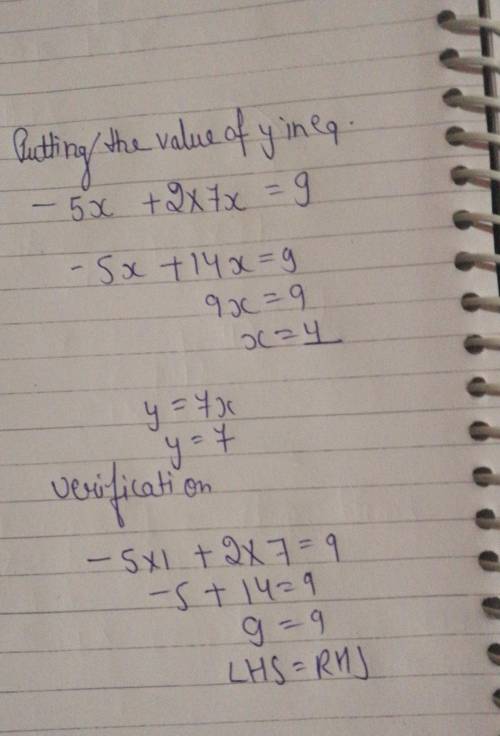 Putting the value of y in eq.
- 5x + 2x7x = 9
- 5x + 14x = 9
9x = 9
x = 4
y = 7x
y = 7
verification
- 5x1 + 2x7 = 9
- 5 + 14 = 9
9 = 9
LHS = RHS